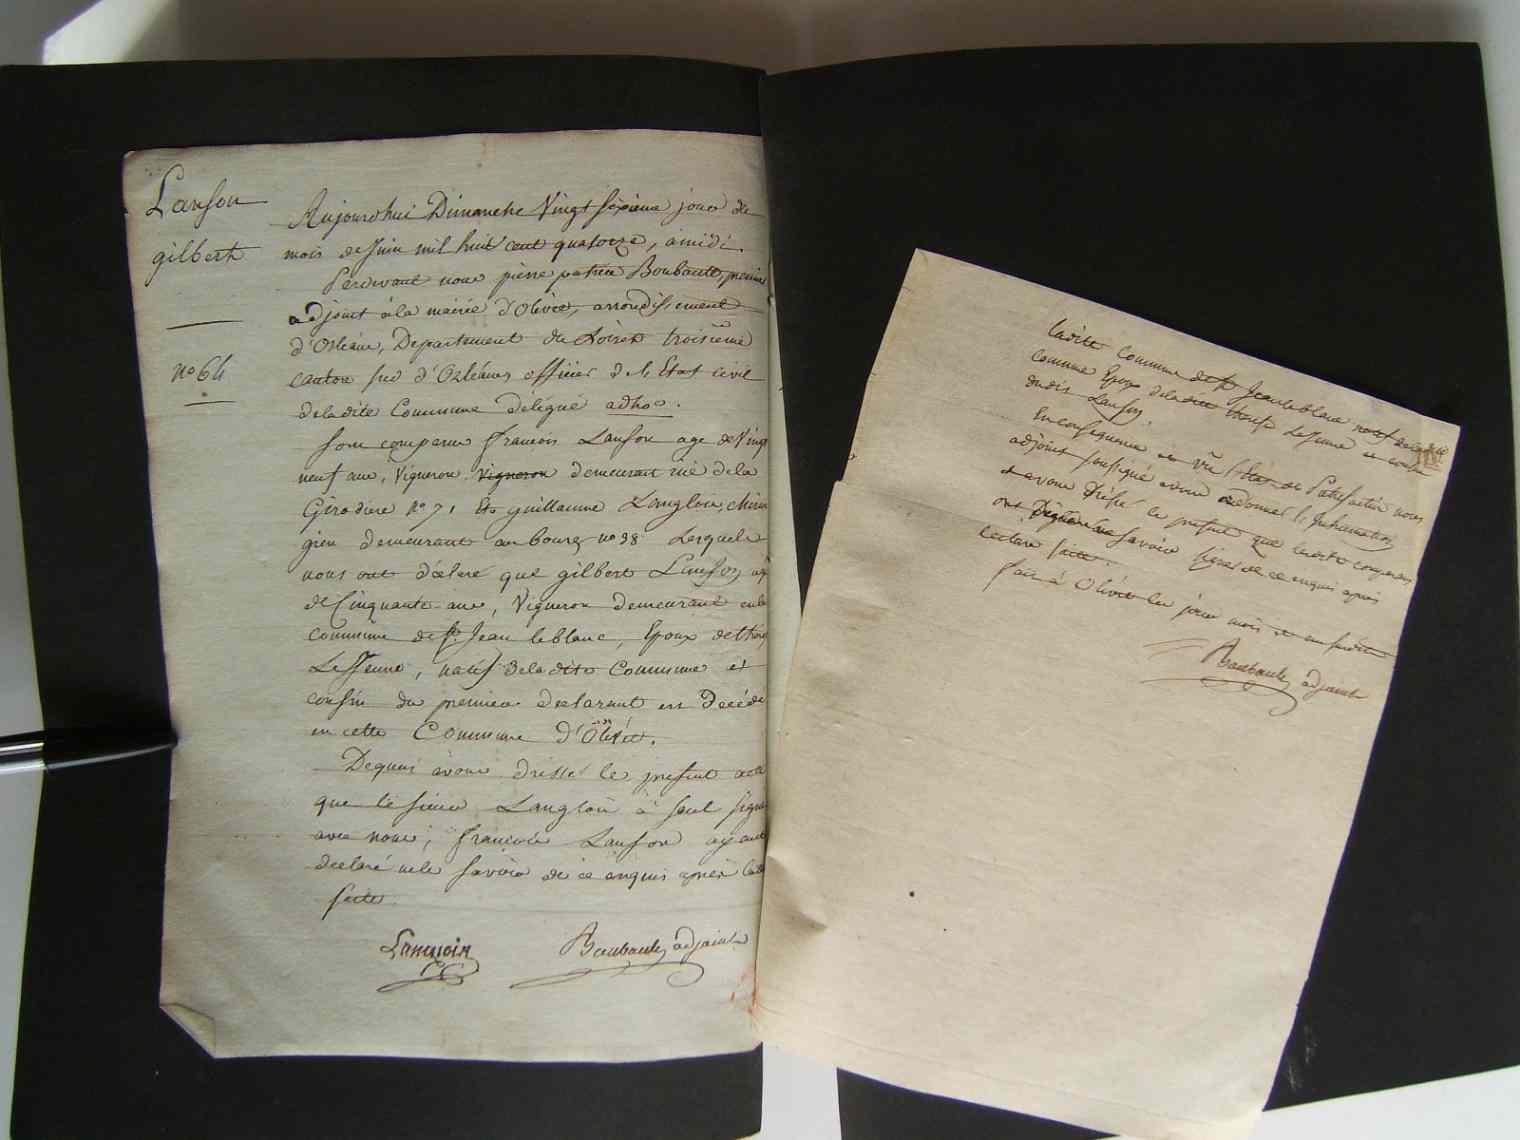 Lanson
gilbert
no 64
Aujourdhui Dimanche Vingt sixieme jour de
mois de Juin mil huit cent quatorze, à midi.
Pardevant nous pierre patrice Boubault, premier
adjoint à la mairie d'Olivet, arrondissement
d'Orléans, Departement du Loiret troisieme
canton sud d'Orléans officier de l'Etat civil
de la dite Commune délégué adhoc.
Sont comparus françois Lanson age de Vingt
neuf ans, Vigneron, Vigneron demeurant rue de la
Girodiere no 71 Et guillaume Langlois, chirur
gien demeurant au bourg no 98 Lesquels
nous ont déclaré que gilbert Lanson, agé
de Cinquante ans, Vigneron demeurant en la
commune de St. Jean le blanc, Epoux de
LeJeune, natif de la dite Commune et
cousin du premier declarant est Décédé
en cette Commune d'Olivet.
Dequoi avons dressé le present acte
que le sieur Langlois à seul signé
avec nous, françois Lanson ayant
déclaré ne le savoir de ce enquis après
faite.
Langlois
Boubault adjoint
ladite Commune de St Jean le blanc natif de
comme Epoux de la dite LeJeune et cousin
dudit Lanson.
En consequence et vu l'Etat de nous
adjoint soussigné avons ordonné l'Inhumation
et avons Dréssé le present que lesdits comparans
ont savoir signer de ce enquis après
lecture faite.
fait à Olivet les jour mois et an susdits
Boubault adjoint